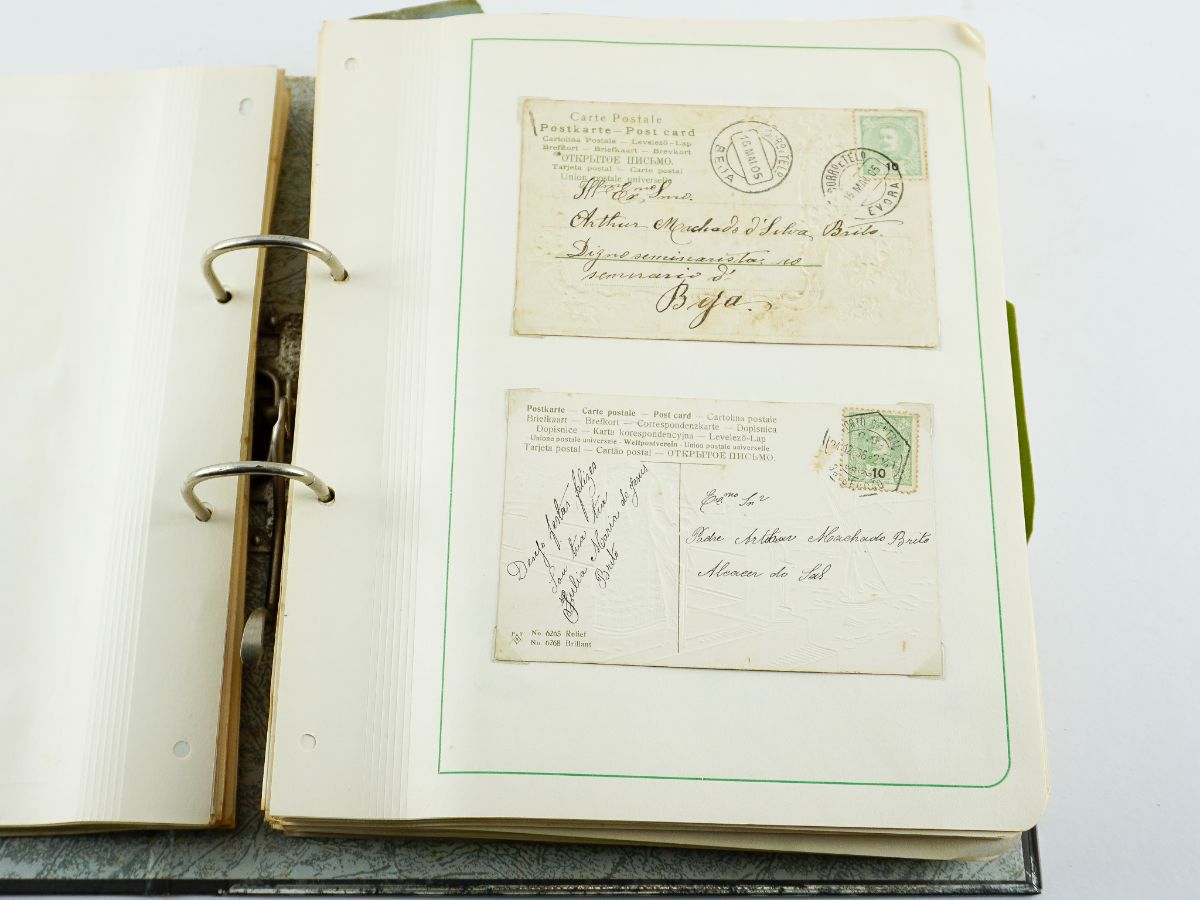 Carte Postale
Postkarte — Post card
Cartolina Postale — Levelező-Lap
Brefkort — Briefkaart — Brevkort
ОТКРЫТОЕ ПИСЬМО.
Tarjeta postal — Carta postal
Union postale universelle
BEJA
16 MAI 05
CORRº E TELº
CORRº E TELº
15 MAI 05
EVORA
10
Illmo Ex. Snro.
Arthur Machado d'Silva Brito.
Digno seminarista no
seminario d'
Beja.
Postkarte — Carte postale — Post card — Cartolina postale
Briefkaart — Brefkort — Correspondenzkarte — Dopisnica
Dopisnice — Karta korespondencyjna — Levelező-Lap
Unione postale universale - Weltpostverein - Union postale universelle
Tarjeta postal — Cartão postal — ОТКРЫТОЕ ПИСЬМО.
10
Desejo festas felizes
Sou tua tia
Julia Maria de Jesus
Brito
Exmo Snr
Padre Arthur Machado Brito
Alcacer do Sal
No. 6265 Relief
No. 6268 Brillant